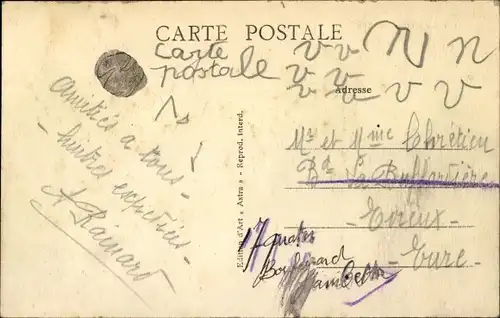 CARTE POSTALE
Carte
postale
v v N n
v v
v v v v
Adresse
Amitiés à tous -
- huitres expédiées -
Edition d'Art « Astra » - Reprod. Interd.
Mr et Mme Chrétien
Bd La Buffardière
- Evreux -
- Eure -
17 quater
Boulevard
Gambetta